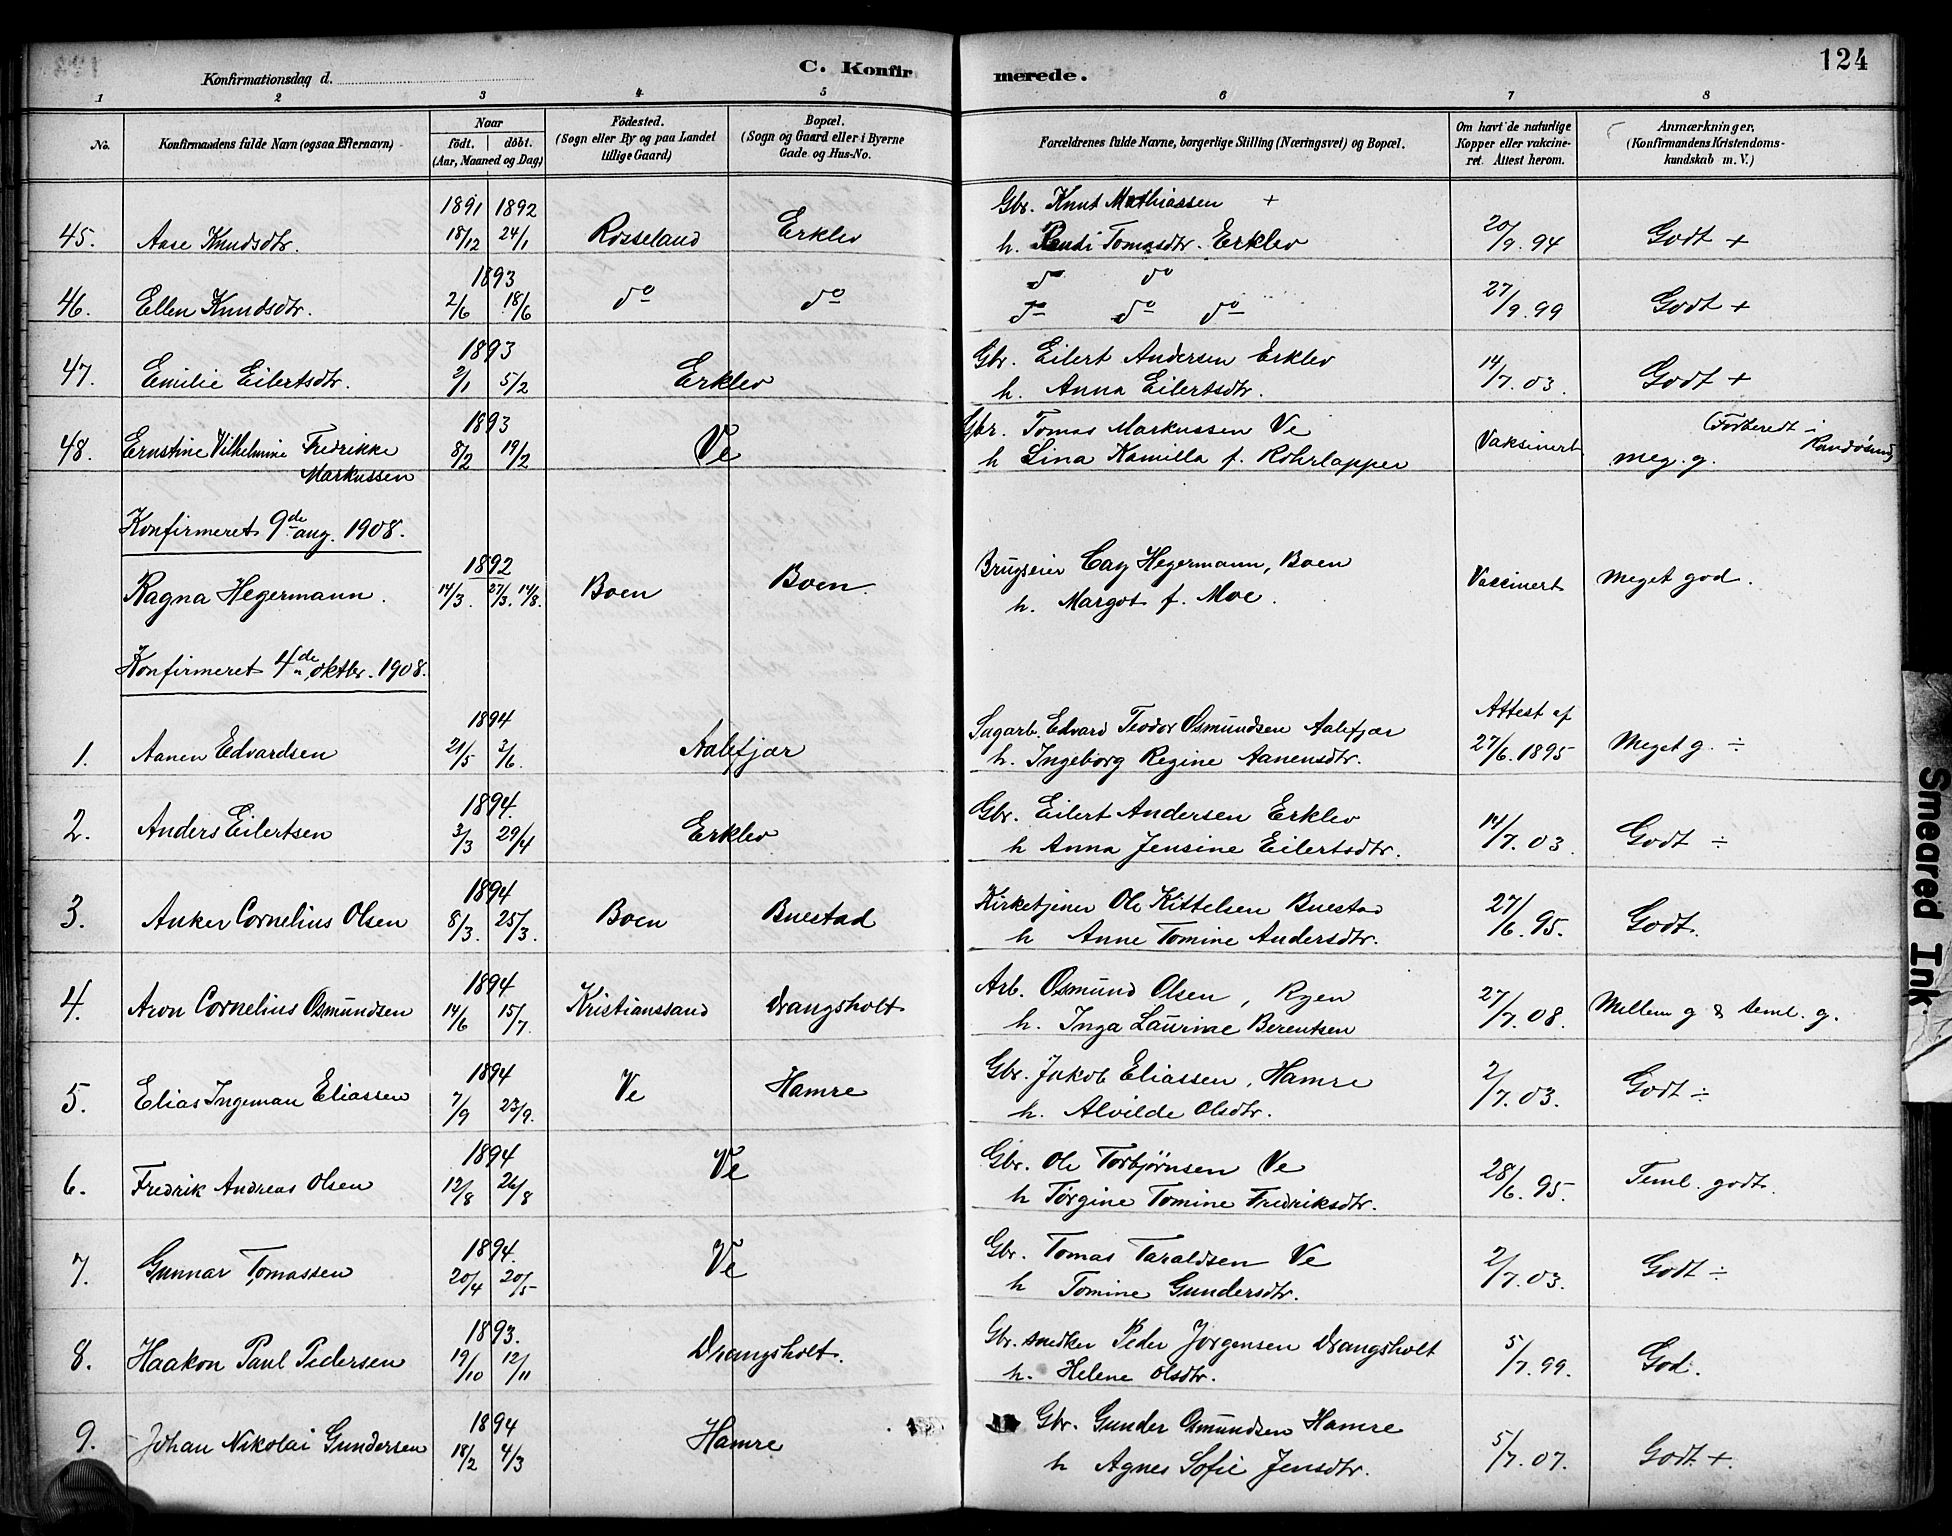 124
Konfirmationsdag d.
C. Konfirmerede.
1 2 3 4 5 6 7 8
No. Konfirmandens fulde Navn (ogsaa Efternavn) Naar født. døbt. (Aar, Maaned og Dag) Fødested. (Sogn eller By og paa Landet tillige Gaard) Bopæl. (Sogn og Gaard eller i Byerne Gade og Hus-No. Forældrenes fulde Navne, borgerlige Stilling (Næringsvei) og Bopæl. Om havt de naturlige Kopper eller vakcineret. Attest herom. Anmærkninger, (Konfirmandens Kristendomskundskab m. V.)
1891 1892 Gbr. Knut Mathiassen +
45. Aase Knudsdtr. 18/12 24/1 Rosseland Erklev h. Randi Tomasdtr. Erklev 20/9. 94 Godt +
1893 do do
46. Ellen Knudsdtr. 2/6 18/6 do do do do do 27/9. 99 Godt +
1893 Gbr. Eilert Andersen Erklev
47. Emilie Eilertsdtr. 2/1 5/2 Erklev h. Anna Eilertsdtr. 14/7. 03. Godt +
1893 Gbr. Tomas Markussen Ve
48. Ernstine Vilhelmine Fredrikke 8/2 19/2 Ve h Lina Kamilla f. Rohrlapper Vaksinert meg. g. (Forberedt i Randøsund)
Markussen
Konfirmeret 9de aug. 1908.
1892 Brugseier Cay Hegermann, Boen
Ragna Hegermann. 14/3. 27/3. 14/8. Boen Boen. h. Margot f. Moe. Vaccinert Meget god.
Konfirmeret 4de oktbr. 1908.
1894 Sagarb. Edvard Teodor Osmundsen Aalefjær Attest af
1. Aanen Edvardsen 21/5 3/6. Aalefjær h. Ingeborg Regine Aanensdtr. 27/6. 1895 Meget g. ÷
1894. Gbr. Eilert Andersen Erklev
2. Anders Eilertsen 3/3 29/4 Erklev h Anna Jensine Eilertsdtr. 14/7. 03. Godt ÷
1894 Kirketjener Ole Kittelsen Buestad
3. Anker Cornelius Olsen 8/3. 25/3. Boen Buestad h Anne Tomine Andersdtr. 27/6. 95. Godt.
1894 Arb. Osmund Olsen, Ryen
4. Aron Cornelius Osmundsen 14/6 15/7. Kristianssand Drangsholt h. Inga Laurine Berentsen 27/7. 08. Mellem g & teml. g.
1894 Gbr. Jakob Eliassen, Hamre
5. Elias Ingeman Eliassen 7/9 23/9. Ve Hamre h. Alvilde Olsdtr. 2/7. 03. Godt ÷
1894 Gbr. Ole Torbjørnsen Ve
6. Fredrik Andreas Olsen 12/8 26/8 Ve h Tørgine Tomine Fredriksdtr. 28/6. 95. Teml. godt.
1894. Gbr. Tomas Taraldsen Ve
7. Gunnar Tomassen 20/4 20/5 Ve h Tomine Gundersdtr. 2/7. 03. Godt ÷
1893. Gbr. snedker Peder Jørgensen Drangsholt
8. Haakon Paul Pedersen 19/10 12/11 Drangsholt. h. Helene Olsdtr. 5/7. 99. God.
1894 Gbr. Gunder Osmundsen Hamre
9. Johan Nikolai Gundersen 18/2 4/3 Hamre h Agnes Sofie Jensdtr. 5/7. 07. Godt +.
Smeared Ink.